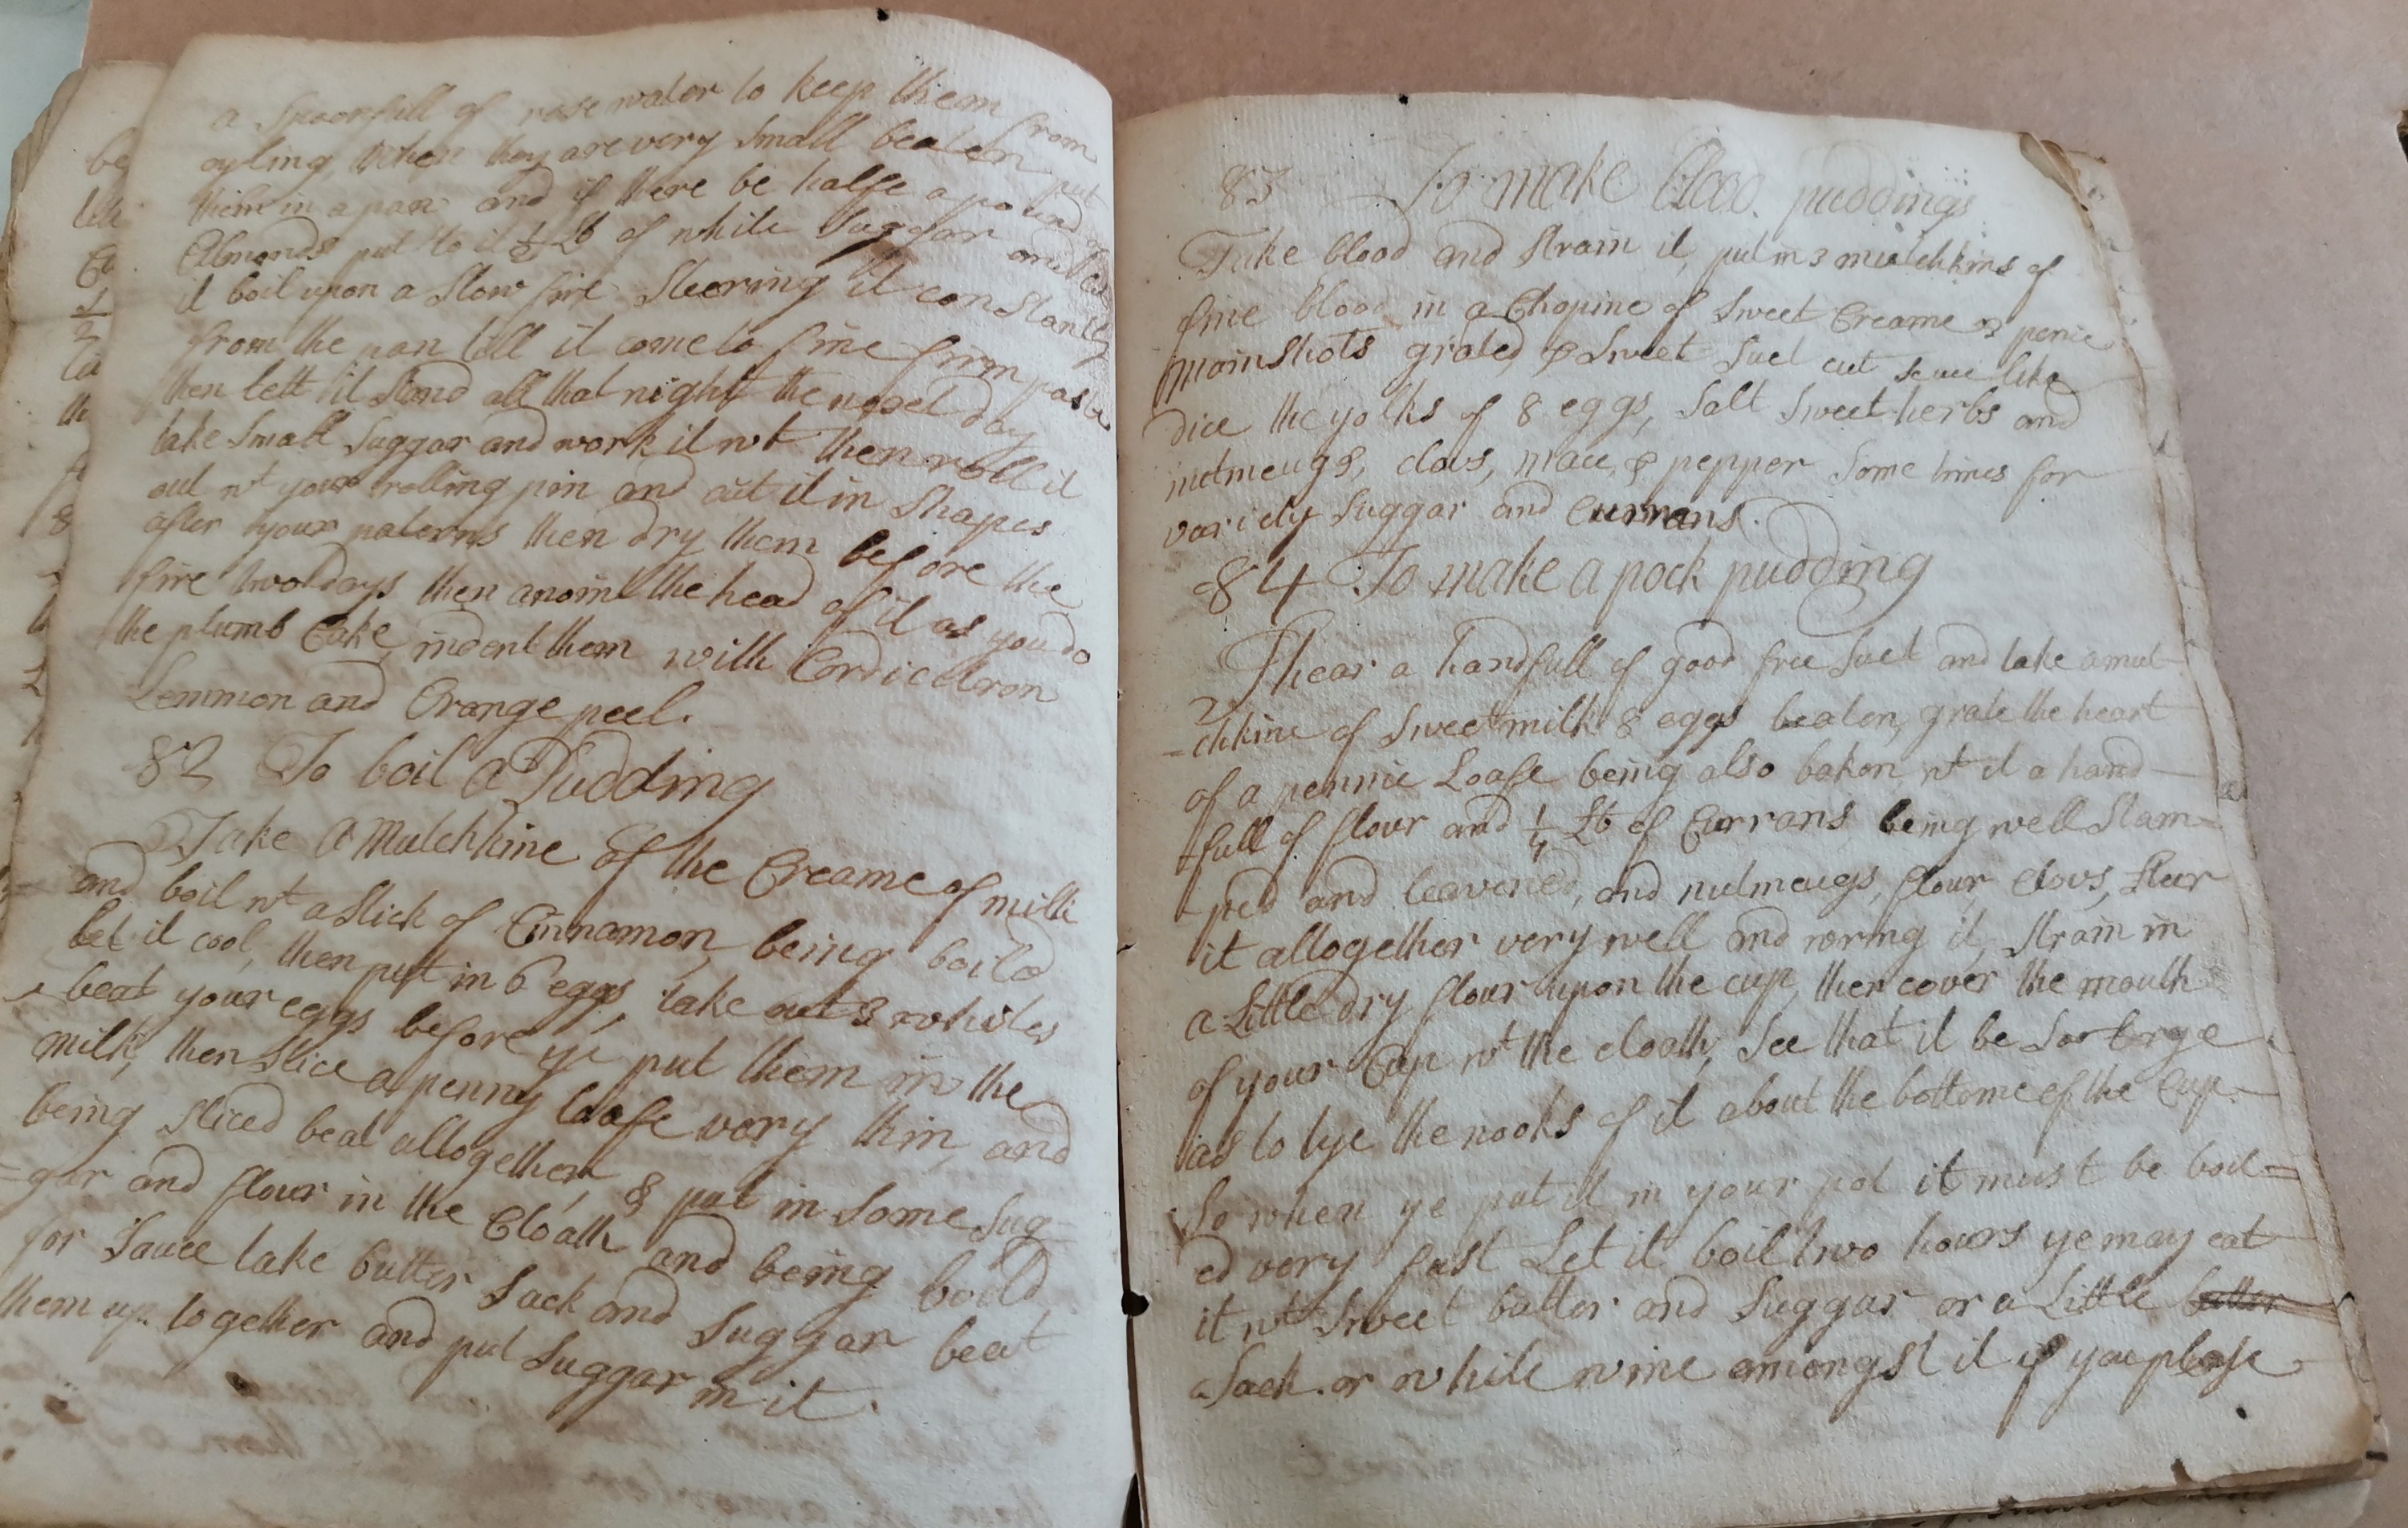 a spoonfull of rose water to keep them from
oyling, when they are very small beaten put
them in a pan and if there be halfe a pound of
Almonds put to it ½ lb of white Suggar and let
it boil upon a slow fire steering it constantly
from the pan till it come to fine firm paste
then lett it stand all that night the next day
take small suggar and work it wt then roll it
out wt your rolling pin and cut it in shapes
after your paterns then dry them before the
fire two days then anoint the head of it as you do
the plumb Cake, indent them with Cordicidron
Lemmon and Orange peel.
82 To boil a Pudding
Take a Mutchkine of the Creame of milk
and boil wt a stick of Cinnamon being boild
let it cool, then put in 6 eggs, take out 3 whites
beat your eggs before ye put them in the
milk, then slice a penny loafe very thin, and
being sliced beat altogether, & put in some sug=
=gar and flour in the Cloath and being boild
for Sauce take butter Sack and Suggar beat
them up together and put Suggar in it.
83 To make blood puddings
Take blood and strain it, put in 3 mutchkins of
fine blood in a Chopine of sweet Creame penie
mainshots grated, & sweet suet cut like
dice the yolks of 8 eggs, Salt sweet herbs and
nutmeugs, clovs, mace, & pepper some times for
variety suggar and Currans.
84 To make a pock pudding
Shear a handfull of good free suet and take a mut-
-chkine of sweet milk 8 eggs beaten, grate the heart
of a pennie Loafe being also baken, wt it a hand-
-full of flour and ¼ lb of Currans being well stam=
-ped and leavened, and nutmeugs, flour, clovs, steer
it altogether very well and wring it, strain in
a Little dry flour upon the cup, then cover the mouth
of your Cup wt the cloath, See that it be so large
as to tye the nooks of it about the bottome of the Cup.
So when ye put it in your pot it must be boil=
ed very fast Let it boil two hours ye may eat
it wt Sweet butter and Suggar or a Little butter
Sack or white wine amongst it if you please